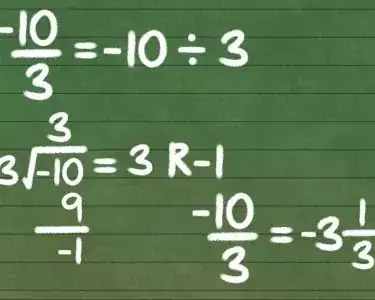 -10/3 = -10 ÷ 3
3
3√-10 = 3 R-1
9
-1
-10/3 = -3 1/3